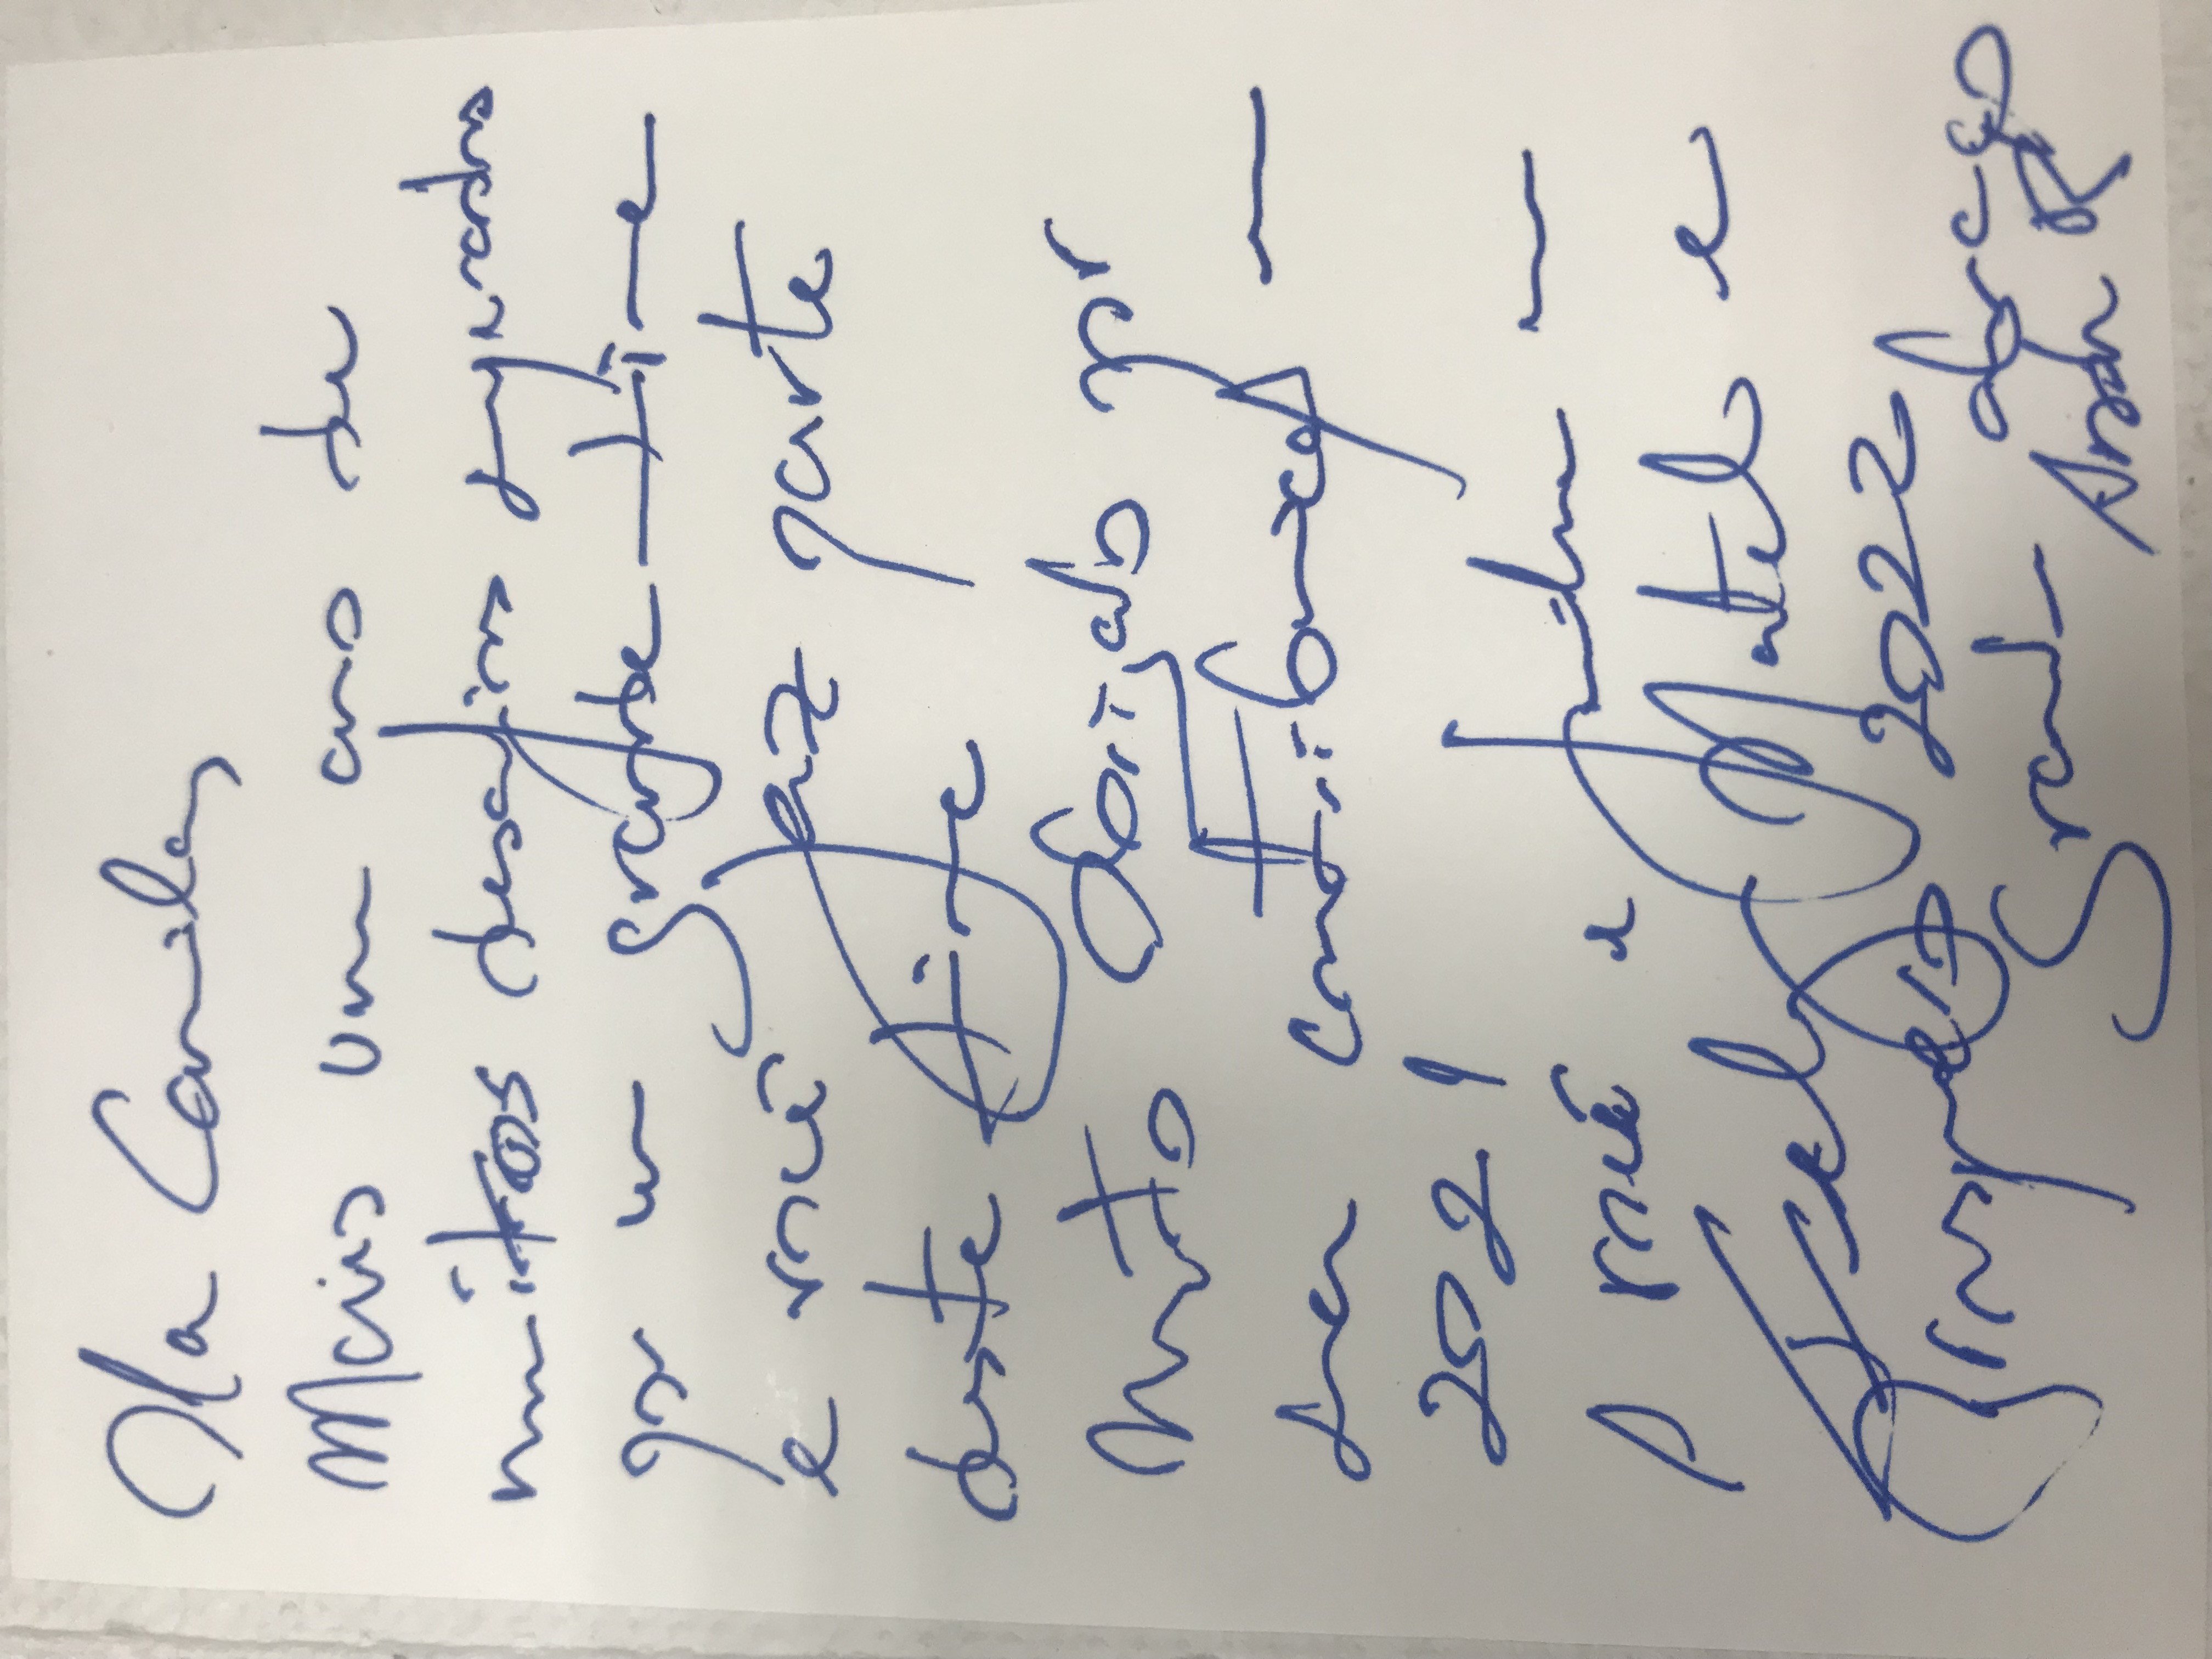 Ola Camila,
Mais um ano de
muitos desafios superados
por um grande time
e você faz parte
deste time
Muito Obrigado por
sua contribuição em
2021
A você e família um
Feliz Natal e
Prospero 2022
Grande abraço
André R